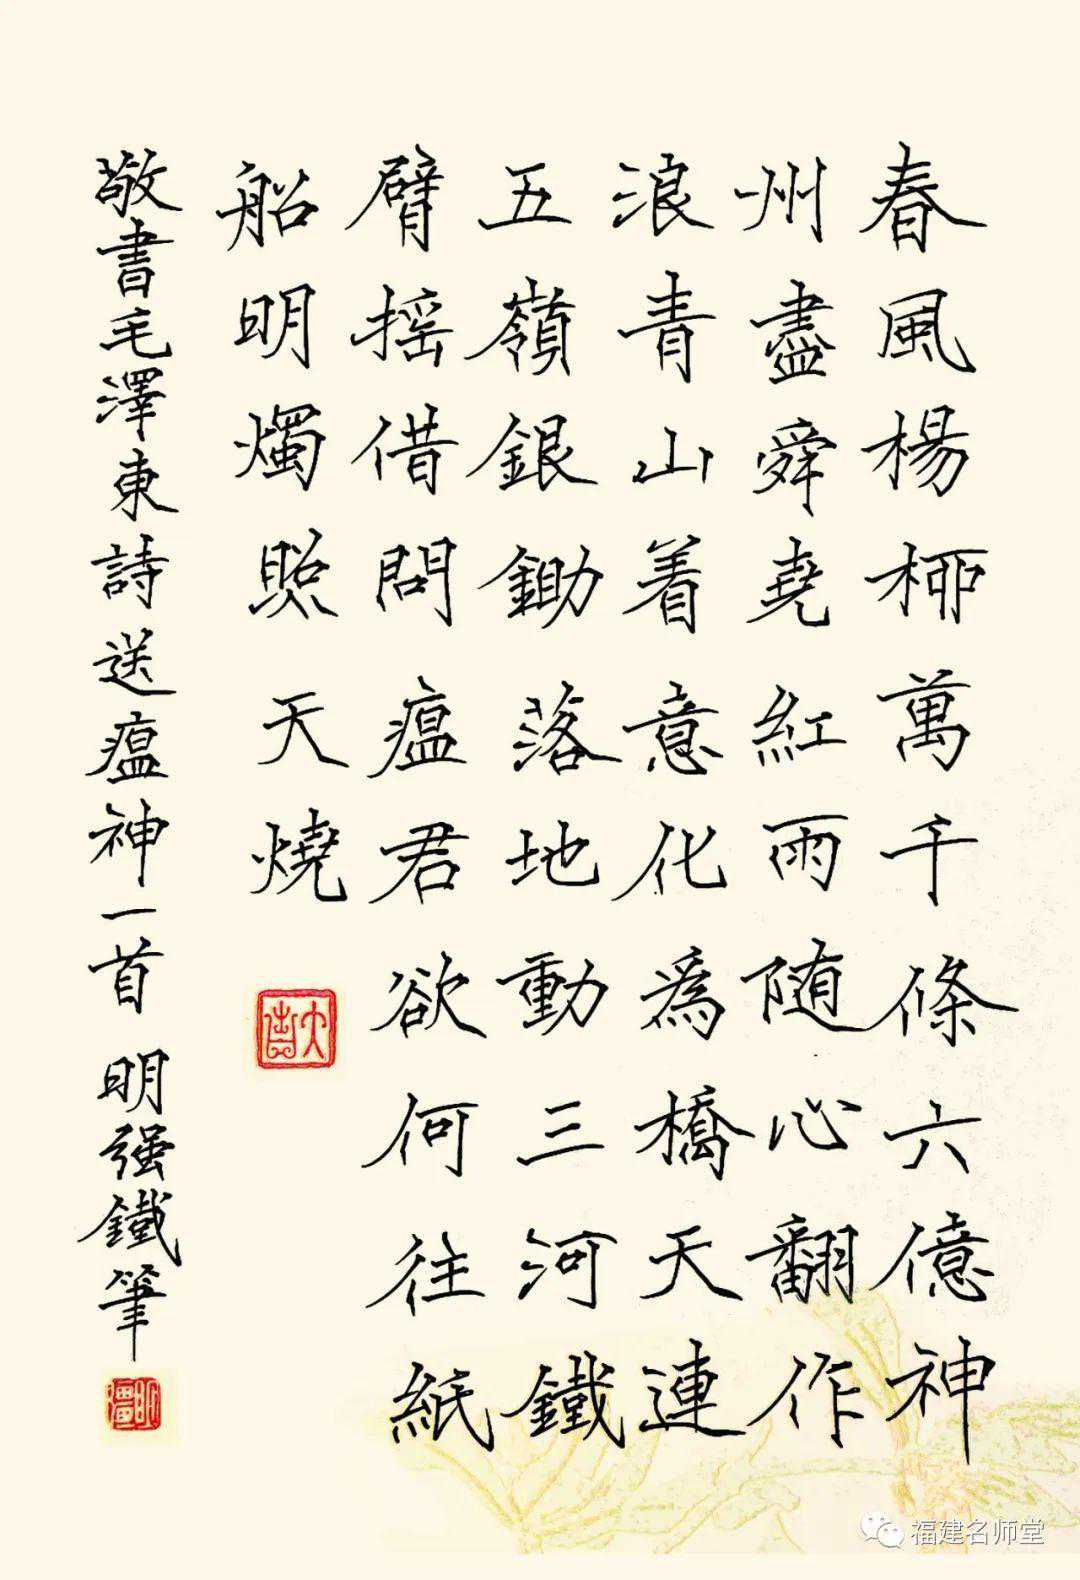 春風楊桺萬千條六億神
州盡舜堯紅雨随心翻作
浪青山着意化為橋天連
五嶺銀鋤落地動三河鐵
臂摇借問瘟君欲何往紙
船明燭照天燒
敬書毛澤東詩送瘟神一首 明强鐵筆
福建名师堂